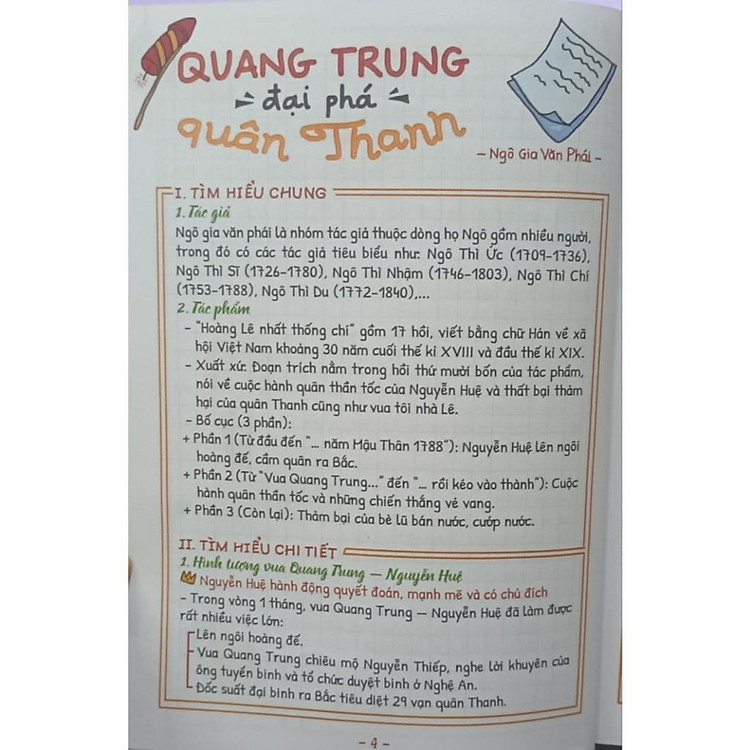 QUANG TRUNG
đại phá
quân Thanh
– Ngô Gia Văn Phái –
I. TÌM HIỂU CHUNG
1. Tác giả
Ngô gia văn phái là nhóm tác giả thuộc dòng họ Ngô gồm nhiều người,
trong đó có các tác giả tiêu biểu như: Ngô Thì Ức (1709-1736),
Ngô Thì Sĩ (1726-1780), Ngô Thì Nhậm (1746-1803), Ngô Thì Chí
(1753-1788), Ngô Thì Du (1772-1840),...
2. Tác phẩm
- "Hoàng Lê nhất thống chí" gồm 17 hồi, viết bằng chữ Hán về xã
hội Việt Nam khoảng 30 năm cuối thế kỉ XVIII và đầu thế kỉ XIX.
- Xuất xứ: Đoạn trích nằm trong hồi thứ mười bốn của tác phẩm,
nói về cuộc hành quân thần tốc của Nguyễn Huệ và thất bại thảm
hại của quân Thanh cũng như vua tôi nhà Lê.
- Bố cục (3 phần):
+ Phần 1 (Từ đầu đến "... năm Mậu Thân 1788"): Nguyễn Huệ lên ngôi
hoàng đế, cầm quân ra Bắc.
+ Phần 2 (Từ "Vua Quang Trung..." đến "... rồi kéo vào thành"): Cuộc
hành quân thần tốc và những chiến thắng vẻ vang.
+ Phần 3 (Còn lại): Thảm bại của bè lũ bán nước, cướp nước.
II. TÌM HIỂU CHI TIẾT
1. Hình tượng vua Quang Trung – Nguyễn Huệ
Nguyễn Huệ hành động quyết đoán, mạnh mẽ và có chủ đích
- Trong vòng 1 tháng, vua Quang Trung – Nguyễn Huệ đã làm được
rất nhiều việc lớn:
Lên ngôi hoàng đế.
Vua Quang Trung chiêu mộ Nguyễn Thiếp, nghe lời khuyên của
ông tuyển binh và tổ chức duyệt binh ở Nghệ An.
Đốc suất đại binh ra Bắc tiêu diệt 29 vạn quân Thanh.
- 4 -